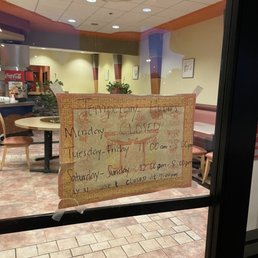 Coca-Cola
Temporary Hours
Monday - CLOSED
Tuesday-Friday - 11:00 am - 8:00 pm
Saturday - Sunday - 12:00 pm - 8:00 pm
closed at